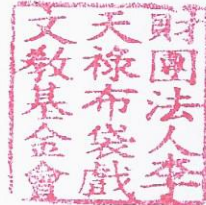 財團法人李
天祿布袋戲
文教基金會